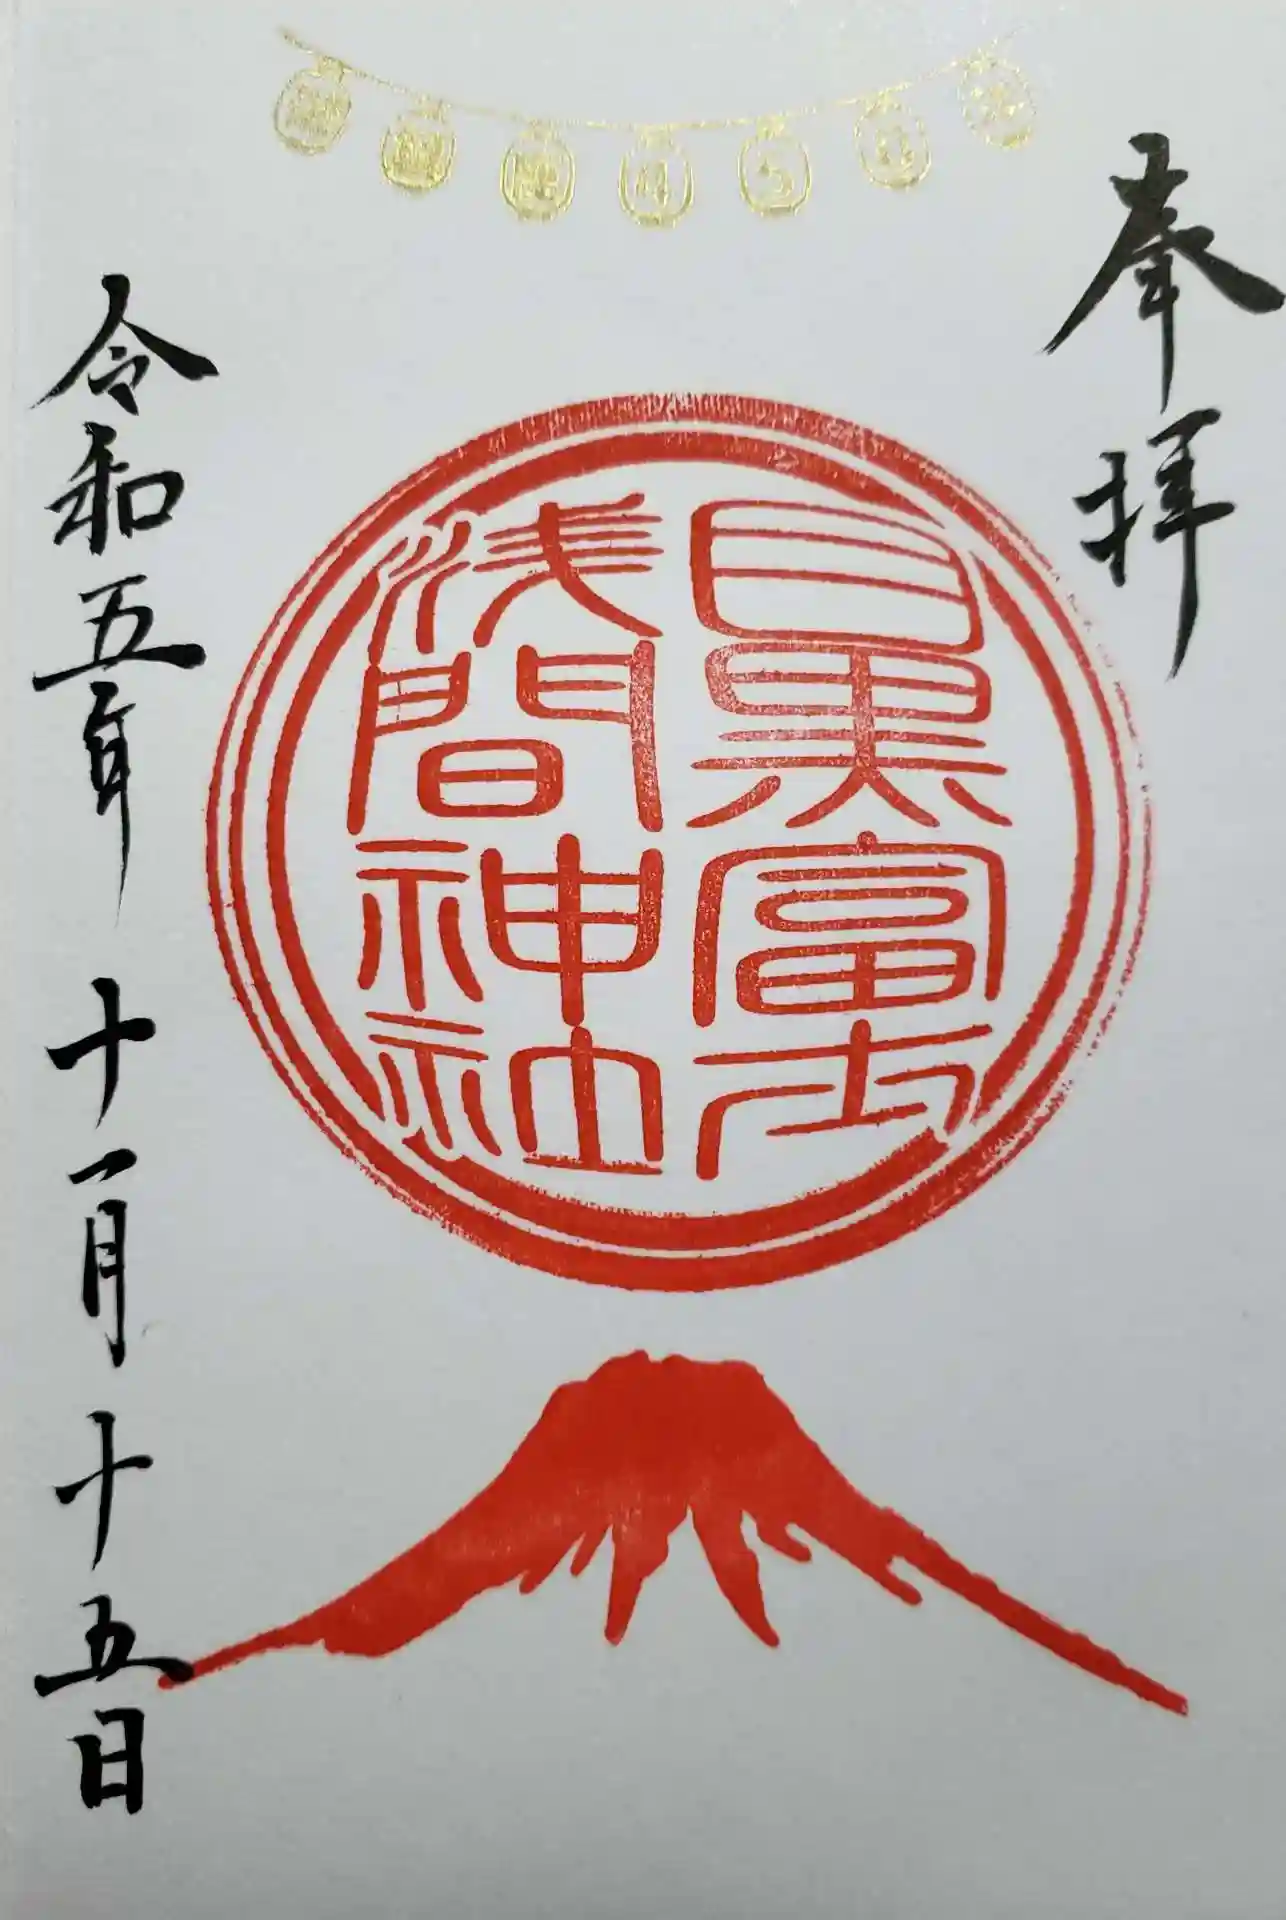 奉拝
目黒富士
浅間神社
令和五年 十一月 十五日